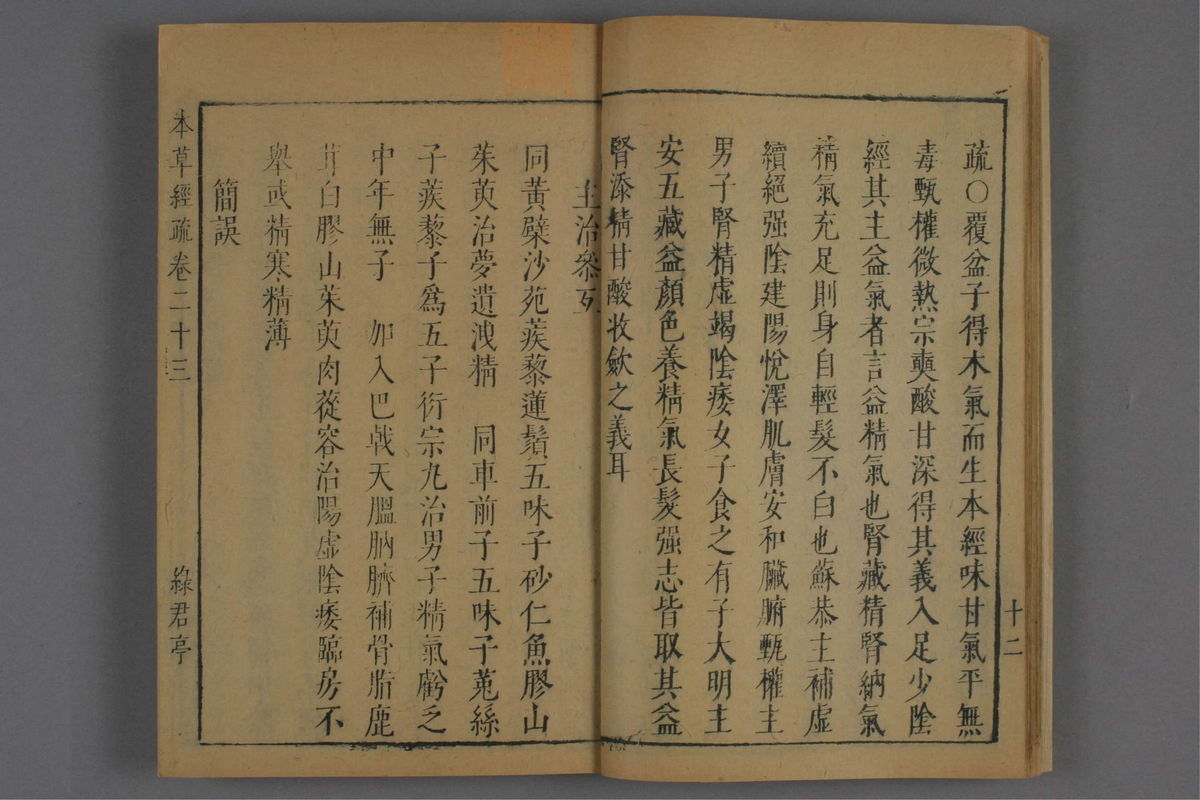 疏〇覆盆子得木氣而生本經味甘氣平無
毒甄權微熱宗奭酸甘深得其義入足少陰
經其主益氣者言益精氣也腎藏精腎納氣
精氣充足則身自輕髮不白也蘇恭主補虛
續絕强陰建陽悅澤肌膚安和臟腑甄權主
男子腎精虛竭陰痿女子食之有子大明主
安五藏益顏色養精氣長髮强志皆取其益
腎添精甘酸收歛之義耳
十二
主治參互
同黃檗沙苑蒺藜蓮鬚五味子砂仁魚膠山
茱萸治夢遺洩精 同車前子五味子菟絲
子蒺藜子爲五子衍宗丸治男子精氣虧乏
中年無子 加入巴戟天膃肭臍補骨脂鹿
茸白膠山茱萸肉蓯容治陽虛陰痿臨房不
舉或精寒精薄
簡誤
本草經疏 卷二十三 綠君亭